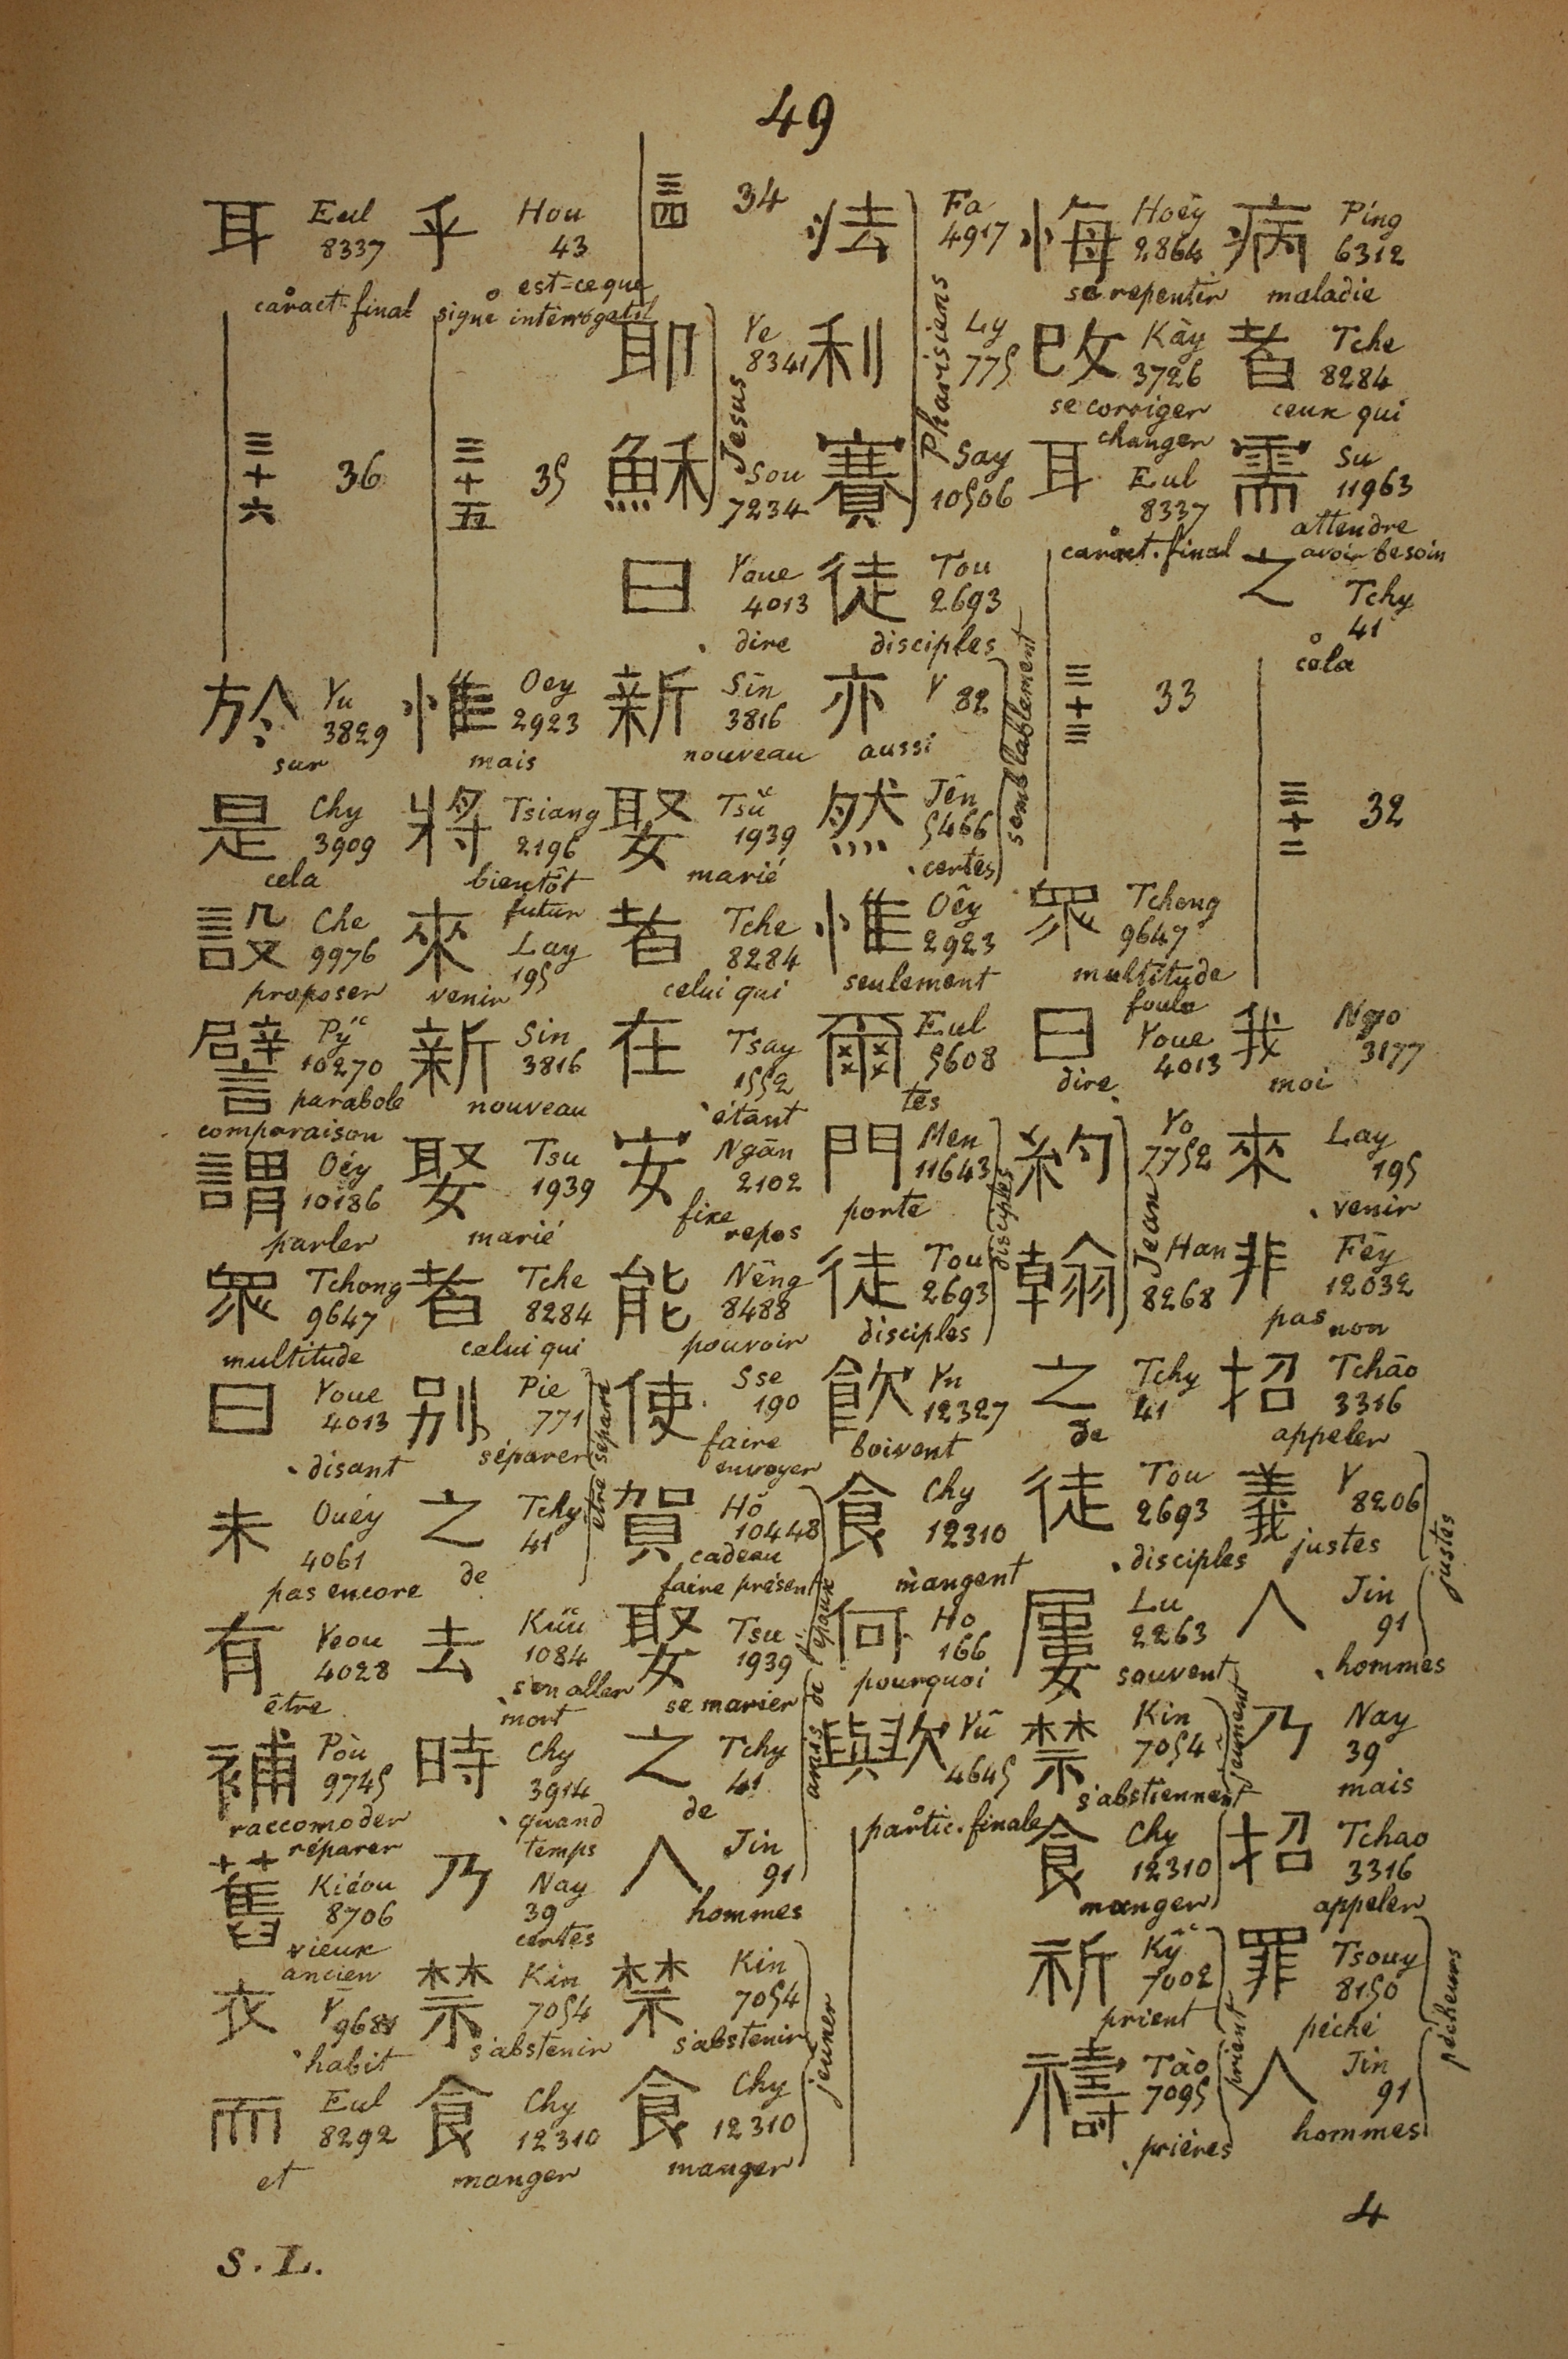 49
病 Píng
6312
maladie
者 Tche
8284
ceux qui
需 Su
11963
attendre
avoir besoin
之 Tchy
41
cela
三十二 32
我 Ngo
3177
moi
來 Lay
195
venir
非 Fēy
12032
pas
non
招 Tchāo
3316
appeler
義 Y
8206
justes
人 Jin
91
hommes
justes
乃 Nay
39
mais
招 Tchao
3316
appeler
罪 Tsouy
8150
péché
人 Jin
91
hommes
pécheurs
悔 Hoèy
2864
se repentir
改 Kày
3726
se corriger
changer
耳 Eul
8337
caract. final
三十三 33
眾 Tchong
9647
multitude
foule
曰 Youe
4013
dire
約 Yo
7752
翰 Han
8268
Jean
之 Tchy
41
de
徒 Tou
2693
disciples
屢 Lu
2263
souvent
禁 Kin
7054
s'abstiennent
食 Chy
12310
manger
jeunent
祈 Ky
7002
prient
禱 Tào
7095
prières
prient
怯 Fa
4917
利 Ly
775
賽 Say
10506
Pharisiens
徒 Tou
2693
disciples
亦 Y 82
aussi
然 Jên
5466
certes
semblablement
惟 Oêy
2923
seulement
爾 Eul
5608
tes
門 Men
11643
porte
徒 Tou
2693
disciples
disciples
飲 Yn
12327
boivent
食 Chy
12310
mangent
何 Ho
166
pourquoi
歟 Yû
4645
partic. finale
三四 34
耶 Ye
8341
穌 Sou
7234
Jesus
曰 Youe
4013
dire
新 Sīn
3816
nouveau
娶 Tsŭ
1939
marié
者 Tche
8284
celui qui
在 Tsay
1552
étant
安 Ngān
2102
fixe
repos
能 Nêng
8488
pouvoir
使 Sse
190
faire
envoyer
賀 Hŏ
10448
cadeau
faire présent
娶 Tsu
1939
se marier
之 Tchy
41
de
人 Jin
91
hommes
amis de l'époux
禁 Kin
7054
s'abstenir
食 Chy
12310
manger
jeuner
乎 Hou
43
est-ce que
signe interrogatif
三十五 35
惟 Oey
2923
mais
將 Tsiang
2196
bientôt
futur
來 Lay
195
venir
新 Sin
3816
nouveau
娶 Tsu
1939
marié
者 Tche
8284
celui qui
別 Pie
771
séparer
之 Tchy
41
de
être séparé
去 Kŭu
1084
s'en aller
mort
時 Chy
3914
quand
temps
乃 Nay
39
certes
禁 Kin
7054
s'abstenir
食 Chy
12310
manger
耳 Eul
8337
caract. final
三十六 36
於 Yu
3829
sur
是 Chy
3909
cela
設 Che
9976
proposer
譬 Py
10270
parabole
comparaison
謂 Oéy
10186
parler
眾 Tchong
9647
multitude
曰 Youe
4013
disant
未 Ouéy
4061
pas encore
有 Yeou
4028
être
補 Pòu
9745
raccomoder
réparer
舊 Kiéou
8706
vieux
ancien
衣 Y
habit
而 Eul
8292
et
4
S. L.